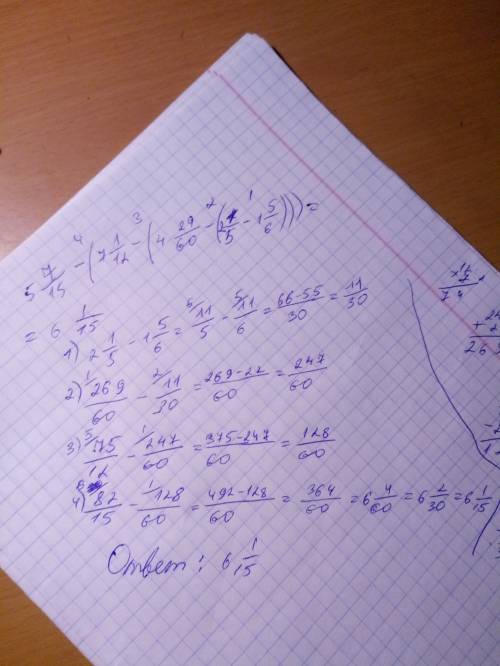 5 7/15 - (7 1/12 - (4 29/60 - (2 1/5 - 1 5/6))) =
= 6 1/15
1) 2 1/5 - 1 5/6 = 11/5 - 11/6 = 66-55/30 = 11/30
2) 269/60 - 11/30 = 269-22/60 = 247/60
3) 75/12 - 247/60 = 375-247/60 = 128/60
4) 82/15 - 128/60 = 492-128/60 = 364/60 = 6 4/60 = 6 2/30 = 6 1/15
Ответ: 6 1/15